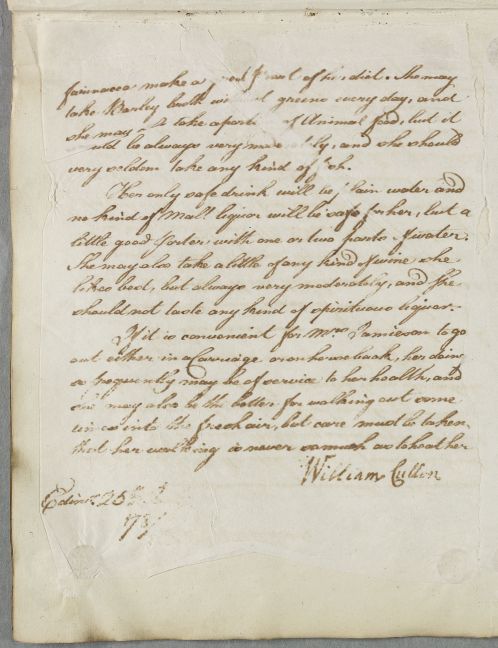 farinacea make a part of her diet. She may
take Barley broth with greens every day, and
she may take a part of Animal food, but it
be always very moderately, and she should
very seldom take any kind of fish.
Her only safe drink will be plain water and
no kind of Malt liquor will be safe for her, but a
little good Porter with one or two parts of water.
She may also take a little of any kind of wine she
likes best, but always very moderately, and She
should not taste any kind of spirituous liquor.
If it is convenient for Mrs Jamieson to go
out either in a Carriage or on horseback, her doing
so frequently may be of service to her health, and
she may also be the better for walking out some
times into the fresh air, but care must be taken
that her walking is never so much as to heat her
William Cullen
Edinr. 25